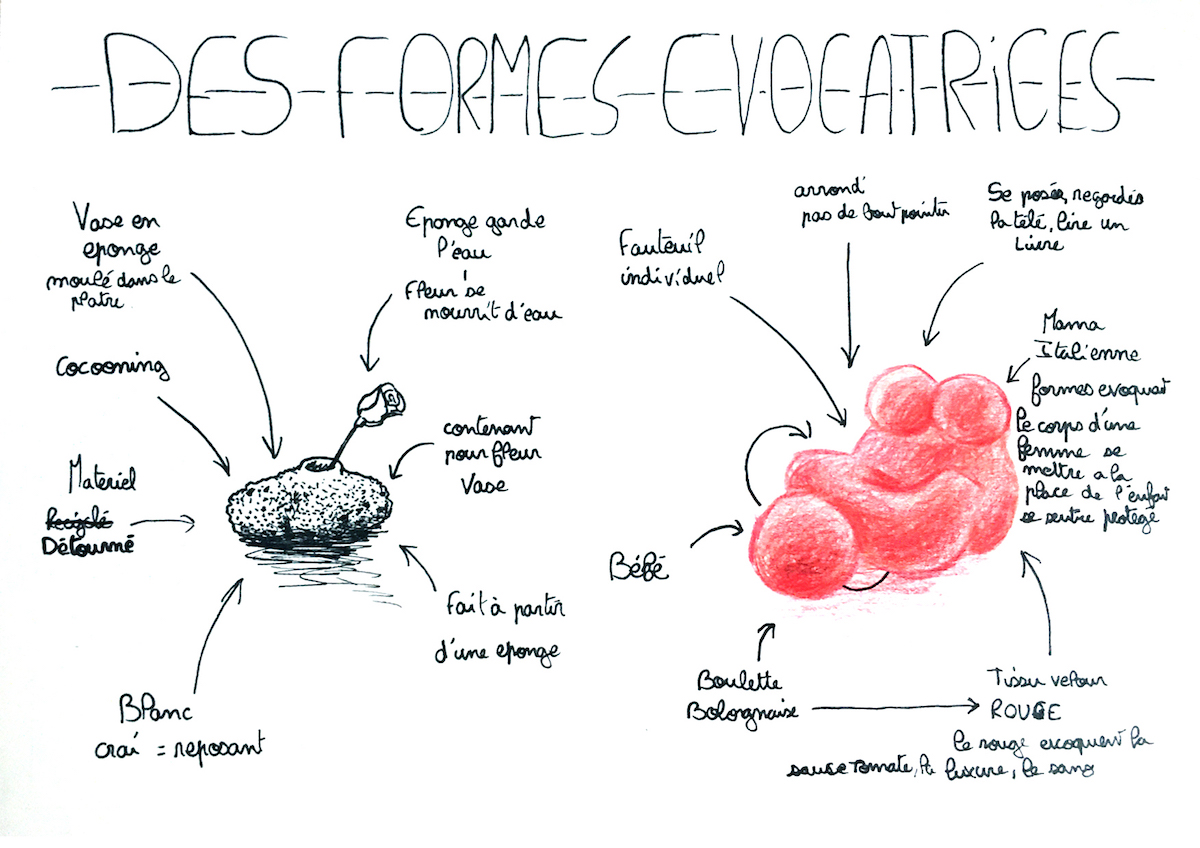 DES FORMES EVOCATRICES
Vase en
eponge
moulé dans le
platre
Cocooning
Materiel
Recyclé
Détourné
Blanc
crai = reposant
Eponge garde
l'eau
Fleur se
nourrit d'eau
contenant
pour fleur
Vase
Fait à partir
d'une eponge
Fauteuil
individuel
arrondi
pas de bout pointu
Se posée, regardés
la télé, lire un
Livre
Mama
Italienne
formes evoquant
le corps d'une
femme se
mettre a la
place de l'enfant
se sentre protégé
Bébé
Boulette
Bolognaise
Tissu velour
ROUGE
le rouge evoquent la
sauce tomate, la luxure, le sang